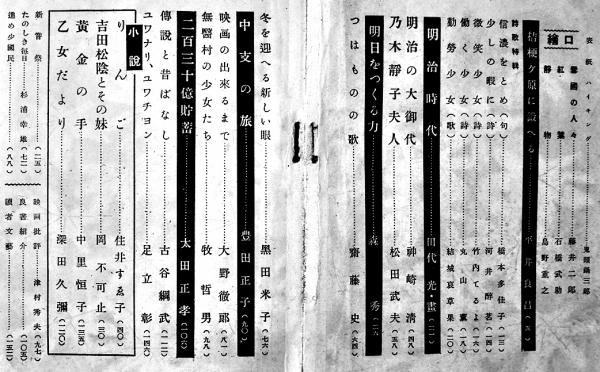 表紙 ハイキング 鬼頭鍋三郎
口繪
雪國の人々 藤井二郎
紅葉 石橋武助
靜物 島野重之
桔梗ケ原に讃へる 平井良昌
詩歌特輯
信濃をとめ(句) 橋本多佳子(一三)
少しの暇に(詩) 河井醉茗(一四)
微笑少女(詩) 竹内てるよ(一六)
働く少女(詩) 丸山薫(一八)
勤勞少女(歌) 結城哀草果(二〇)
明治時代 田代光・畫(二一)
明治の大御代 神崎清(四八)
乃木靜子夫人 松田武夫(五八)
明日をつくる力 森秀
つはものの歌 齋藤史(六四)
冬を迎へる新しい眼 黒田米子(七六)
中支の旅 豊田正子(九〇)
映画の出來るまで 大野徹郎(八一)
無醫村の少女たち 牧哲男(九八)
二百三十億貯蓄 太田正孝(一〇六)
傳説と昔ばなし 古谷綱武(一一二)
ユワナリ、ユワチヨン 足立彰(一四六)
小説
りんご 住井すゑ子(四〇)
吉田松陰とその妹 岡不可止(三〇)
黄金の手 中里恒子(一三五)
乙女だより 深田久彌(一二〇)
新嘗祭(一二五)
たのしき毎日 杉浦幸雄(七二)
進め少國民(八八)
映画批評 津村秀夫(九七)
良書紹介(一〇五)
讀者文藝(一五二)